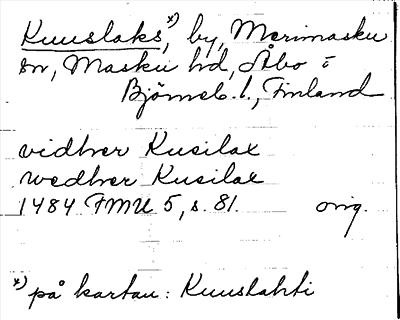 Kuuslaks*), by, Merimasku
sn, Masku hd, Åbo o
Björneb. l., Finland
vidher Kusilax
wedher Kusilax
1484 FMU 5, s. 81. orig.
*) på kartan: Kuuslahti